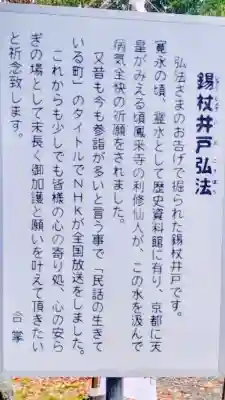 錫杖井戸弘法
弘法さまのお告げで掘られた錫杖井戸です。
寛永の頃、霊水として歴史資料館に有り、京都に天
皇がみえる頃鳳来寺の利修仙人が、この水を汲んで
病気全快の祈願をされました。
又昔も今も参詣が多いと言う事で「民話の生きて
いる町」のタイトルでNHKが全国放送をしました。
これからも少しでも皆様の心の寄り処、心の安ら
ぎの場として末長く御加護と願いを叶えて頂きたい
と祈念致します。
合掌